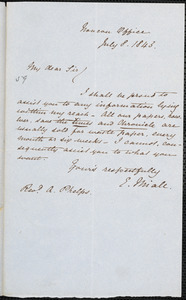 Noncon Office
July 8. 1843.
My dear Sir/
59
I shall be proud to
assist you to any information lying
within my reach - All our papers, how-
ever, save the times and Chronicle are
usually sold for waste paper, every
month or six weeks - I cannot, con-
sequently assist you to what you
want.
Yours respectfully
E. Miall.
Revd. A. Phelps.